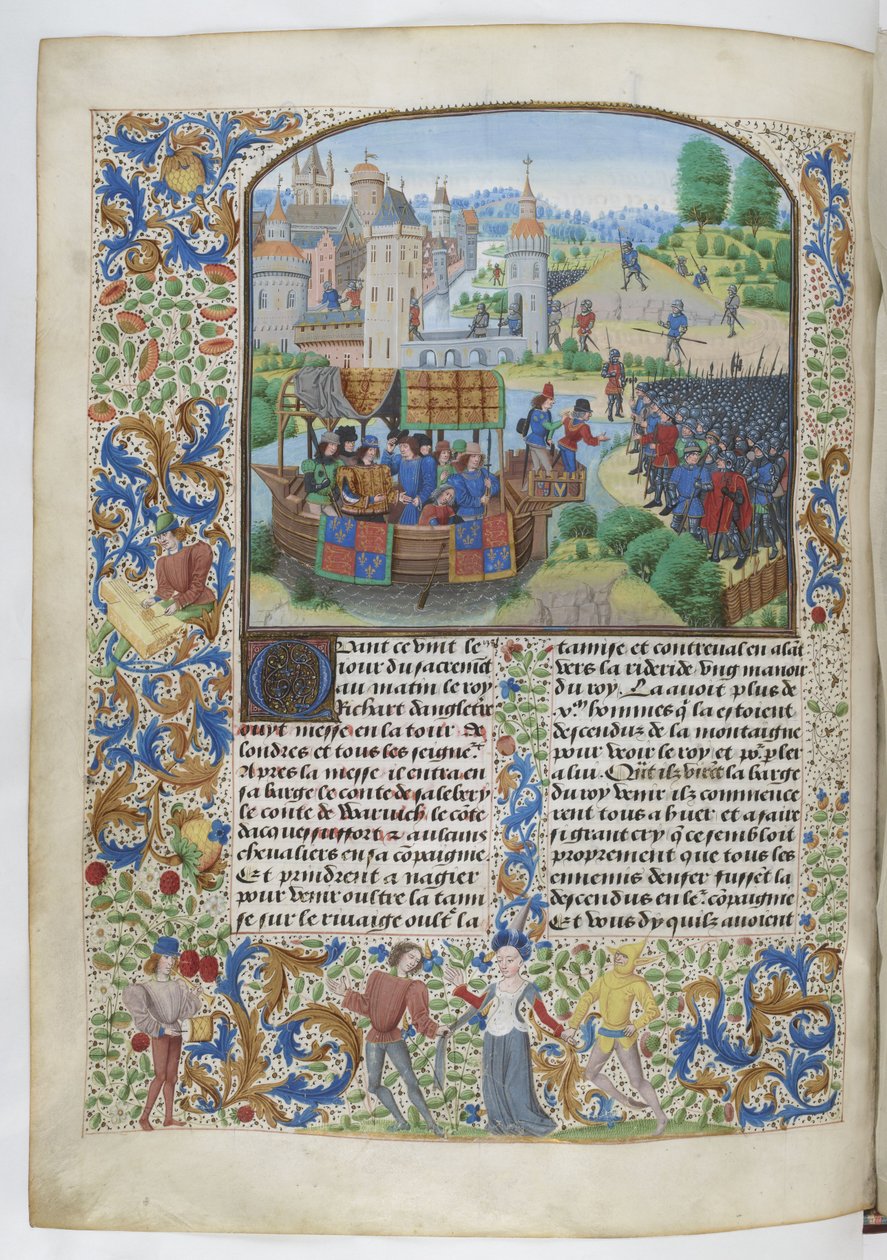 Quant ce vint le
iour du sacremēt
au matin le roy
Richart dangletr̄e
ouyt messe en la tour de
londres et tous les seigne.
Apres la messe il entra en
sa barge le conte de salebery
le conte de Warwich le cōte
dacquessuffort et aulcuns
cheualiers en sa cōpaignie.
Et prindrent a nagier
pour venir oultre la tami
se sur le riuaige oult̄ la
tamise et contreual en alāt
vers la rideride vng manoir
du roy. La auoit plus de
v.ͫ hommes q̄ la estoient
descenduz de la montaigne
pour veoir le roy et po.ʳ p̱ler
a lui. Quāt ilz virēt la barge
du roy venir ilz commence
rent tous a huer et a faire
si grant cry q̄ ce sembloit
proprement que tous les
ennemis denfer fussēt la
descendus en le.ʳ cōpaignie
Et vous dy quilz auoient